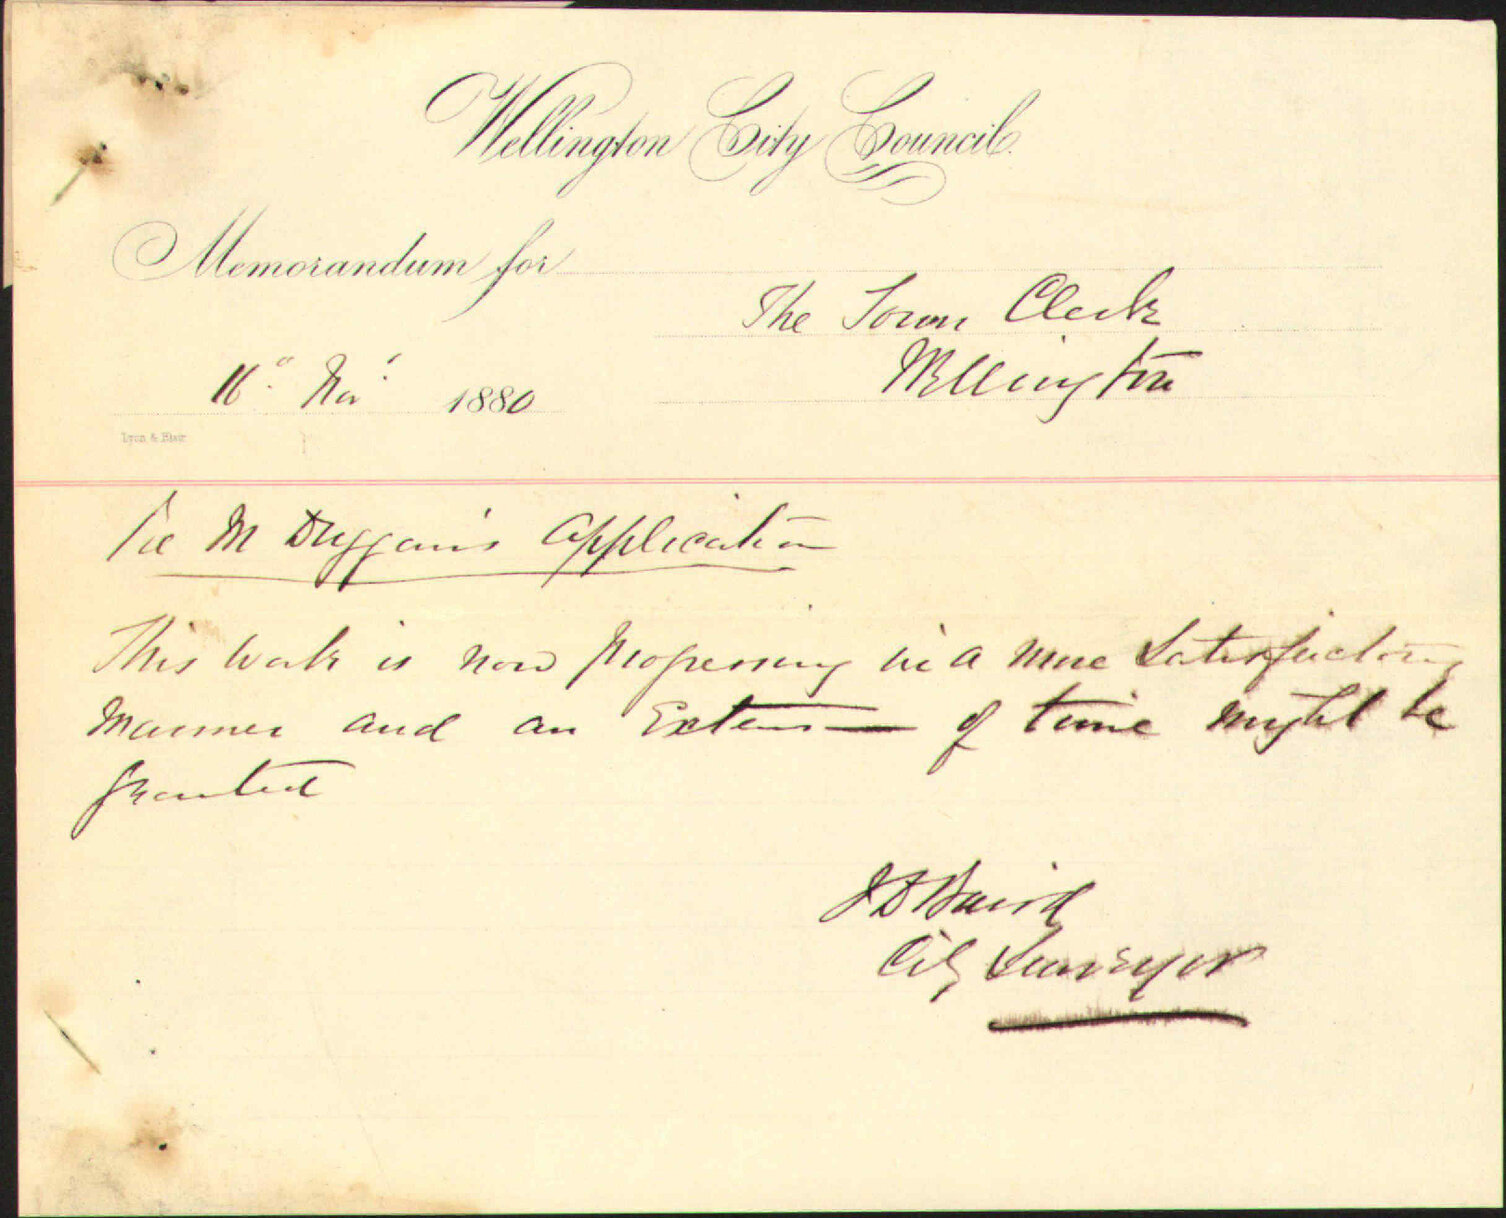 Wellington City Council.
Memorandum for
The Town Clerk
Wellington
16" Nov' 1880
Lyon & Blair
re M Duggan's Application
This work is now progressing in a more Satisfactory
Manner and an Extens— of time might be
granted
J D Baird
City Surveyor